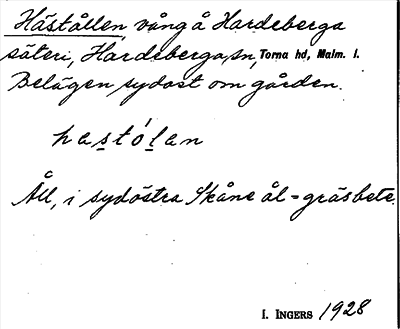 Håstållen, vång å Hardeberga
säteri, Hardeberga sn, Torna hd, Malm. l.
Belägen sydost om gården.
hastólan
Åll, i sydöstra Skåne ål = gräsbete.
I. INGERS 1928